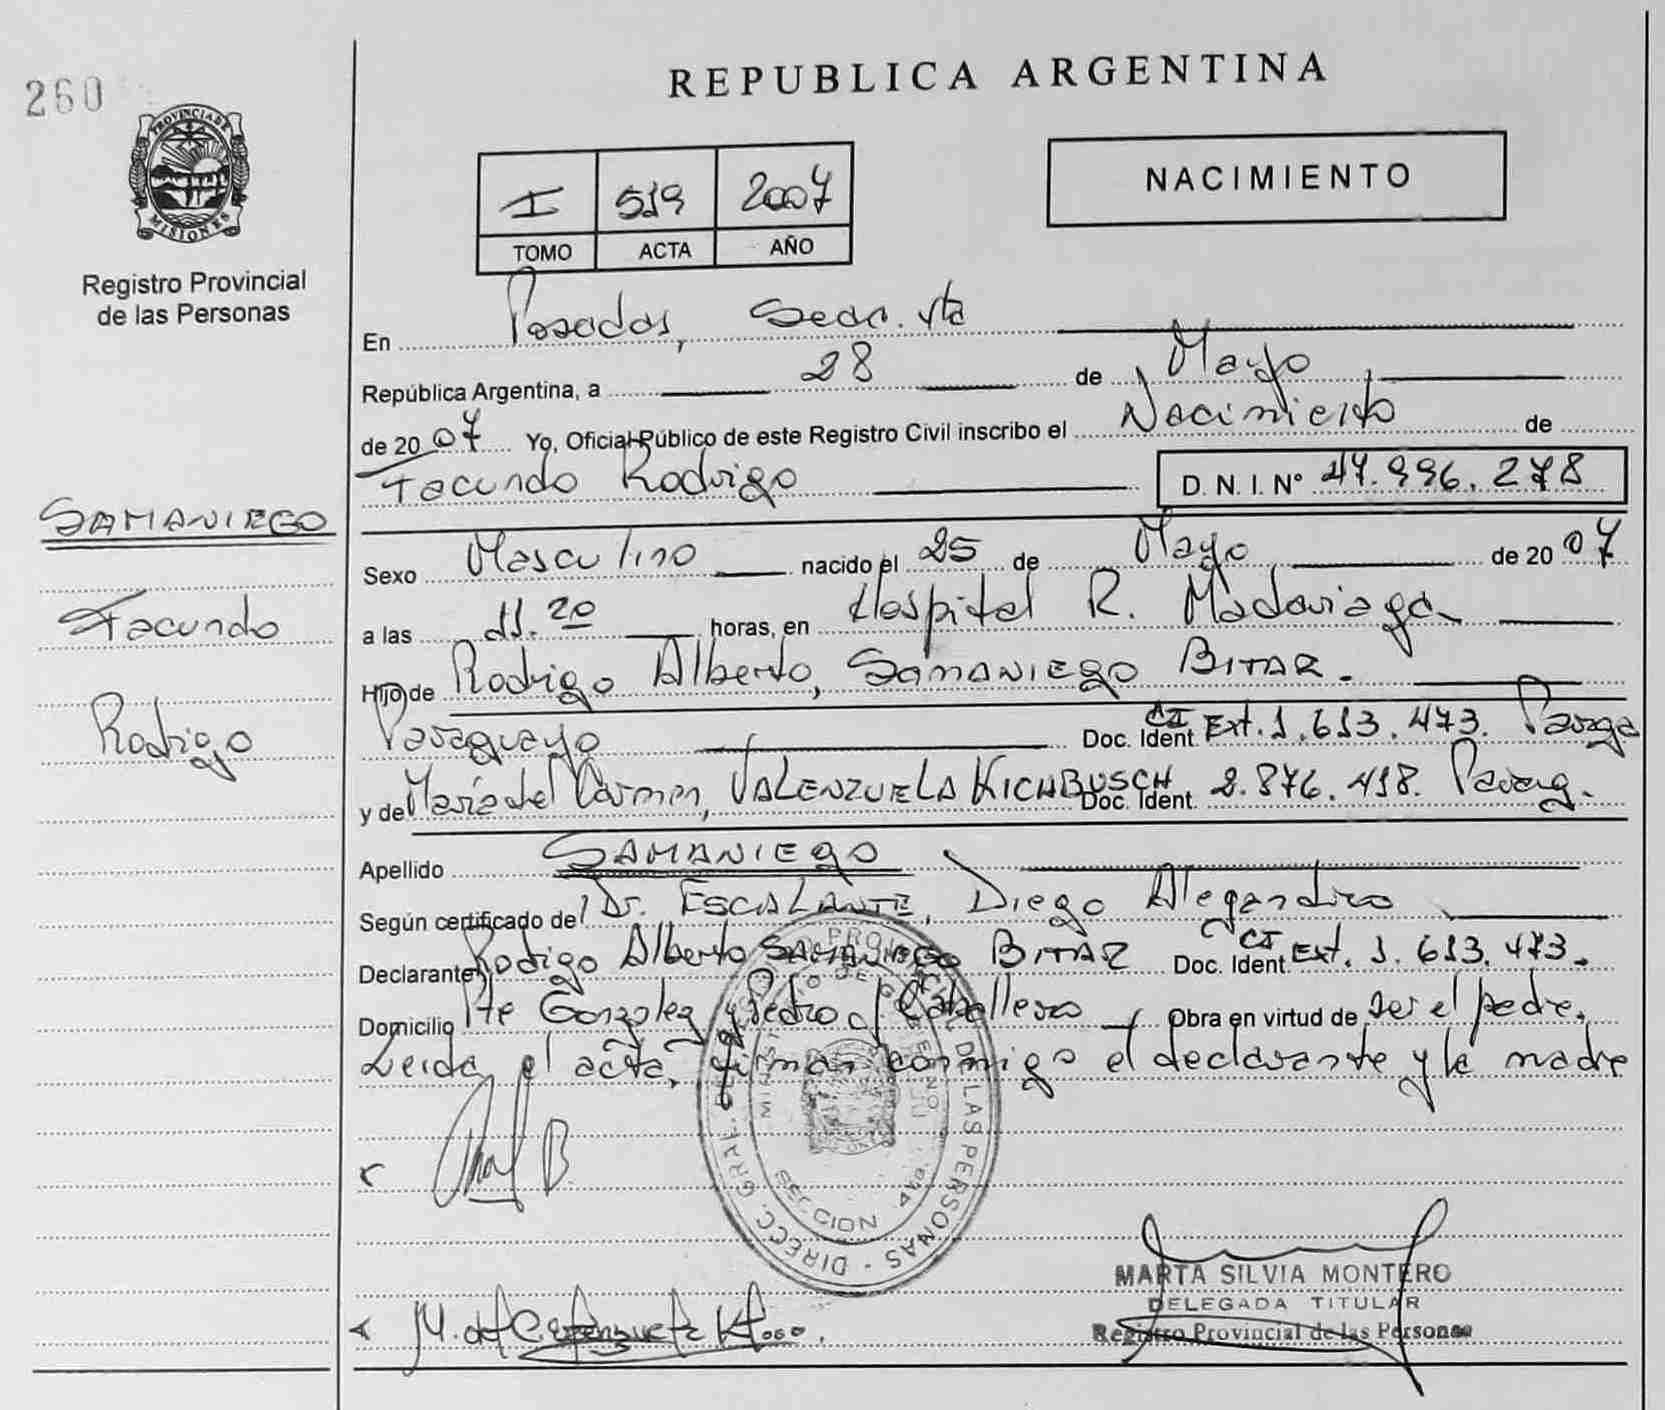 260
PROVINCIA DE MISIONES
Registro Provincial
de las Personas
REPUBLICA ARGENTINA
I 519 2007
TOMO ACTA AÑO
NACIMIENTO
En Posadas, Secc. 4ta
República Argentina, a 28 de Mayo
de 2007 Yo, Oficial Público de este Registro Civil inscribo el Nacimiento de
Facundo Rodrigo D. N. I. N° 47.996.278
SAMANIEGO
Facundo
Rodrigo
Sexo Masculino nacido el 25 de Mayo de 2007
a las 11.20 horas, en Hospital R. Madariaga
Hijo de Rodrigo Alberto, SAMANIEGO BITAR.
Paraguayo Doc. Ident. CI Ext. 1.613.473. Parag
y de María del Carmen, VALENZUELA KICHBUSCH Doc. Ident. 2.876.418. Parag.
Apellido SAMANIEGO
Según certificado del Dr. ESCALANTE, Diego Alegandro
Declarante Rodigo Alberto SAMANIEGO BITAR Doc. Ident. CI Ext. 1.613.473.
Domicilio Pte Gonzalez y Pedro J Caballero Obra en virtud de ser el padre.
Leida el acta, firman conmigo el declarante y la madre
DIRECC. GRAL. DE PROVINCIAL DE LAS PERSONAS
MINISTERIO DE GOBIERNO
SECCION 4ta.
MARTA SILVIA MONTERO
DELEGADA TITULAR
Registro Provincial de las Personas